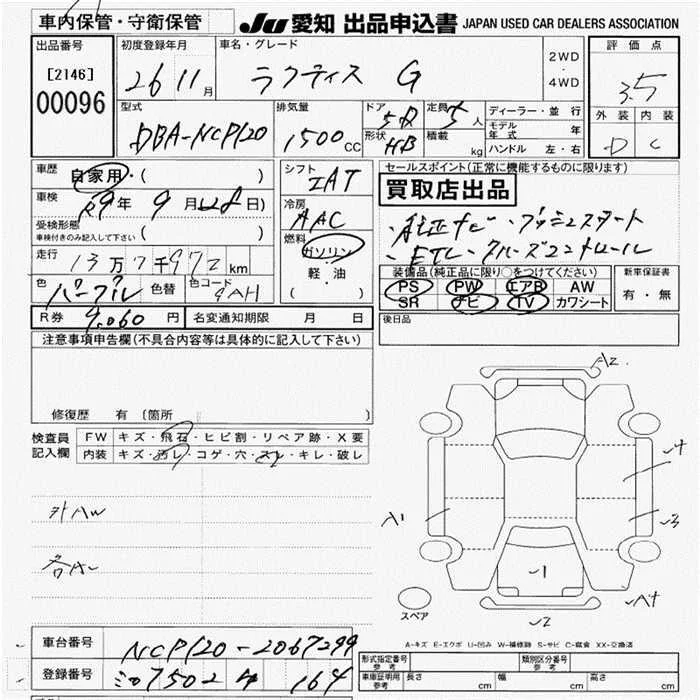 車内保管・守衛保管
JU 愛知 出品申込書 JAPAN USED CAR DEALERS ASSOCIATION
出品番号
[2146]
00096
初度登録年月
26 11 月
車名・グレード
ラクティス G
2WD
・
4WD
評価点
3.5
外装 内装
D C
型式
DBA-NCP120
排気量
1500 CC
ドア
5D
形状
HB
定員
5 人
積載
kg
ディーラー・並行
モデル年式 年
ハンドル 左・右
車歴
自家用・( )
車検
R9年 9月 28日)
受検形態
車検付きのみ記入して下さい ( )
走行
13万7千972 km
色
パープル 色替
色コード
9AH
シフト
IAT
冷房
AAC
燃料
ガソリン
・
軽・油
( )
セールスポイント(正常に機能するものに限ります)
買取店出品
・純正ナビ ・プッシュスタート
・ETC ・クルーズコントロール
装備品(純正品に限り○をつけてください)
PS PW エアB AW
SR ナビ TV カワシート
新車保証書
有・無
R券 9,060 円
名変通知期限 月 日
後日品
注意事項申告欄(不具合内容等は具体的に記入して下さい)
修復歴 有 〔箇所 〕
検査員記入欄
FW キズ・飛石・ヒビ割・リペア跡・X要
内装 キズ・汚レ・コゲ・穴・スレ・キレ・破レ
外AW
各A
A2
A1
スペア
A-キズ E-エクボ U-凹み W-補修跡 S-サビ C-腐食 XX-交換済
車台番号
NCP120-2067299
登録番号
164
形式指定番号
参考
類別区分番号
参考
車庫証明用
参考
長さ cm
幅 cm
高さ cm